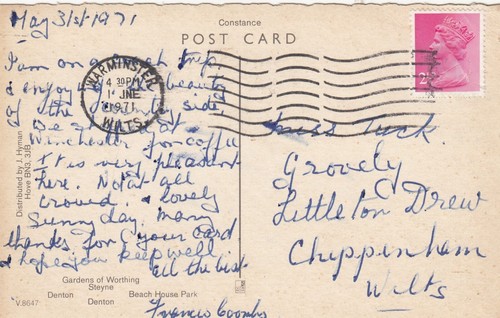 Constance
POST CARD
May 31st 1971
I am on a coach trip
& enjoying the beauty
of the side,
We at
Winchester for coffee
It is very pleasant
here. Not at all
crowed. a lovely
Sunny day. Many
thanks for your card
& hope you keep well.
all the best
Francis Coombs
WARMINSTER
4 30 PM
1 JNE
1971
WILTS
Miss Tuck.
Grovely
Littleton Drew
Chippenham
Wilts
Distributed by J. Hyman
Hove BN3, 3JB
Gardens of Worthing
Steyne
Denton Denton Beach House Park
V.8647